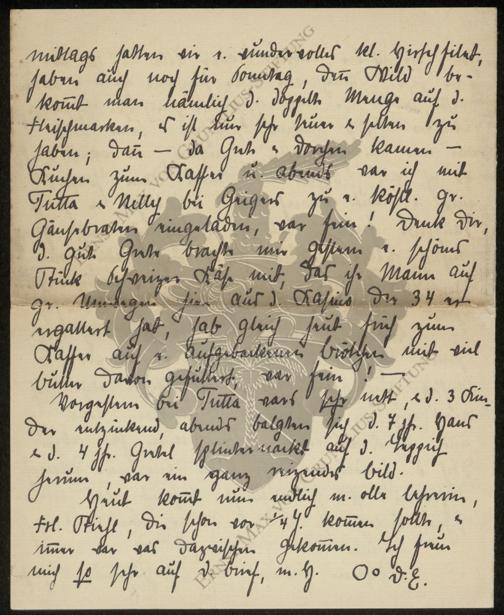 mittags hatten wir e. wundervolles kl. Hirschfilet,
haben auch noch für Sonntag, den̄ Wild be-
kom̄t man nämlich d. doppelte Menge auf d.
Fleischmarken, es ist nur sehr teuer & selten zu
haben; dan̄ – da Grete & Dorchen kamen –
Kuchen zum Kaffee u. abends war ich mit
Tutta & Nelly bei Geigers zu e. köstl. gr.
Gänsebraten eingeladen, war fein! Denk Dir,
d. gute Grete brachte mir gestern e. schönes
Stück Schweizer Käse mit, das ihr Mann auf
gr. Umwegen hier aus d. Kasino der 34 er
ergattert hat, hab gleich heut früh zum
Kaffee auf e. aufgebackenen Brötchen mit viel
Butter davon gefuttert, war fein! –
Vorgestern bei Tutta wars sehr nett & d. 3 Kin-
der entzückend, abends balgten sich d. 7 jh. Hans
& d. 4 jh. Gretel splinternackt auf d. Teppich
herum, war ein ganz reizendes Bild.
Heut kom̄t nun endlich m. olle Lehrerin,
Frl. Stiehl, die schon vor ¼ J. kom̄en sollte, &
im̄er war was dazwischen gekom̄en. Ich freu
mich so sehr auf d. Brief, m. H. Oo d. E.
ERNST MAX VON GRUNELIUS-STIFTUNG
ERNST MAX VON GRUNELIUS-STIFTUNG